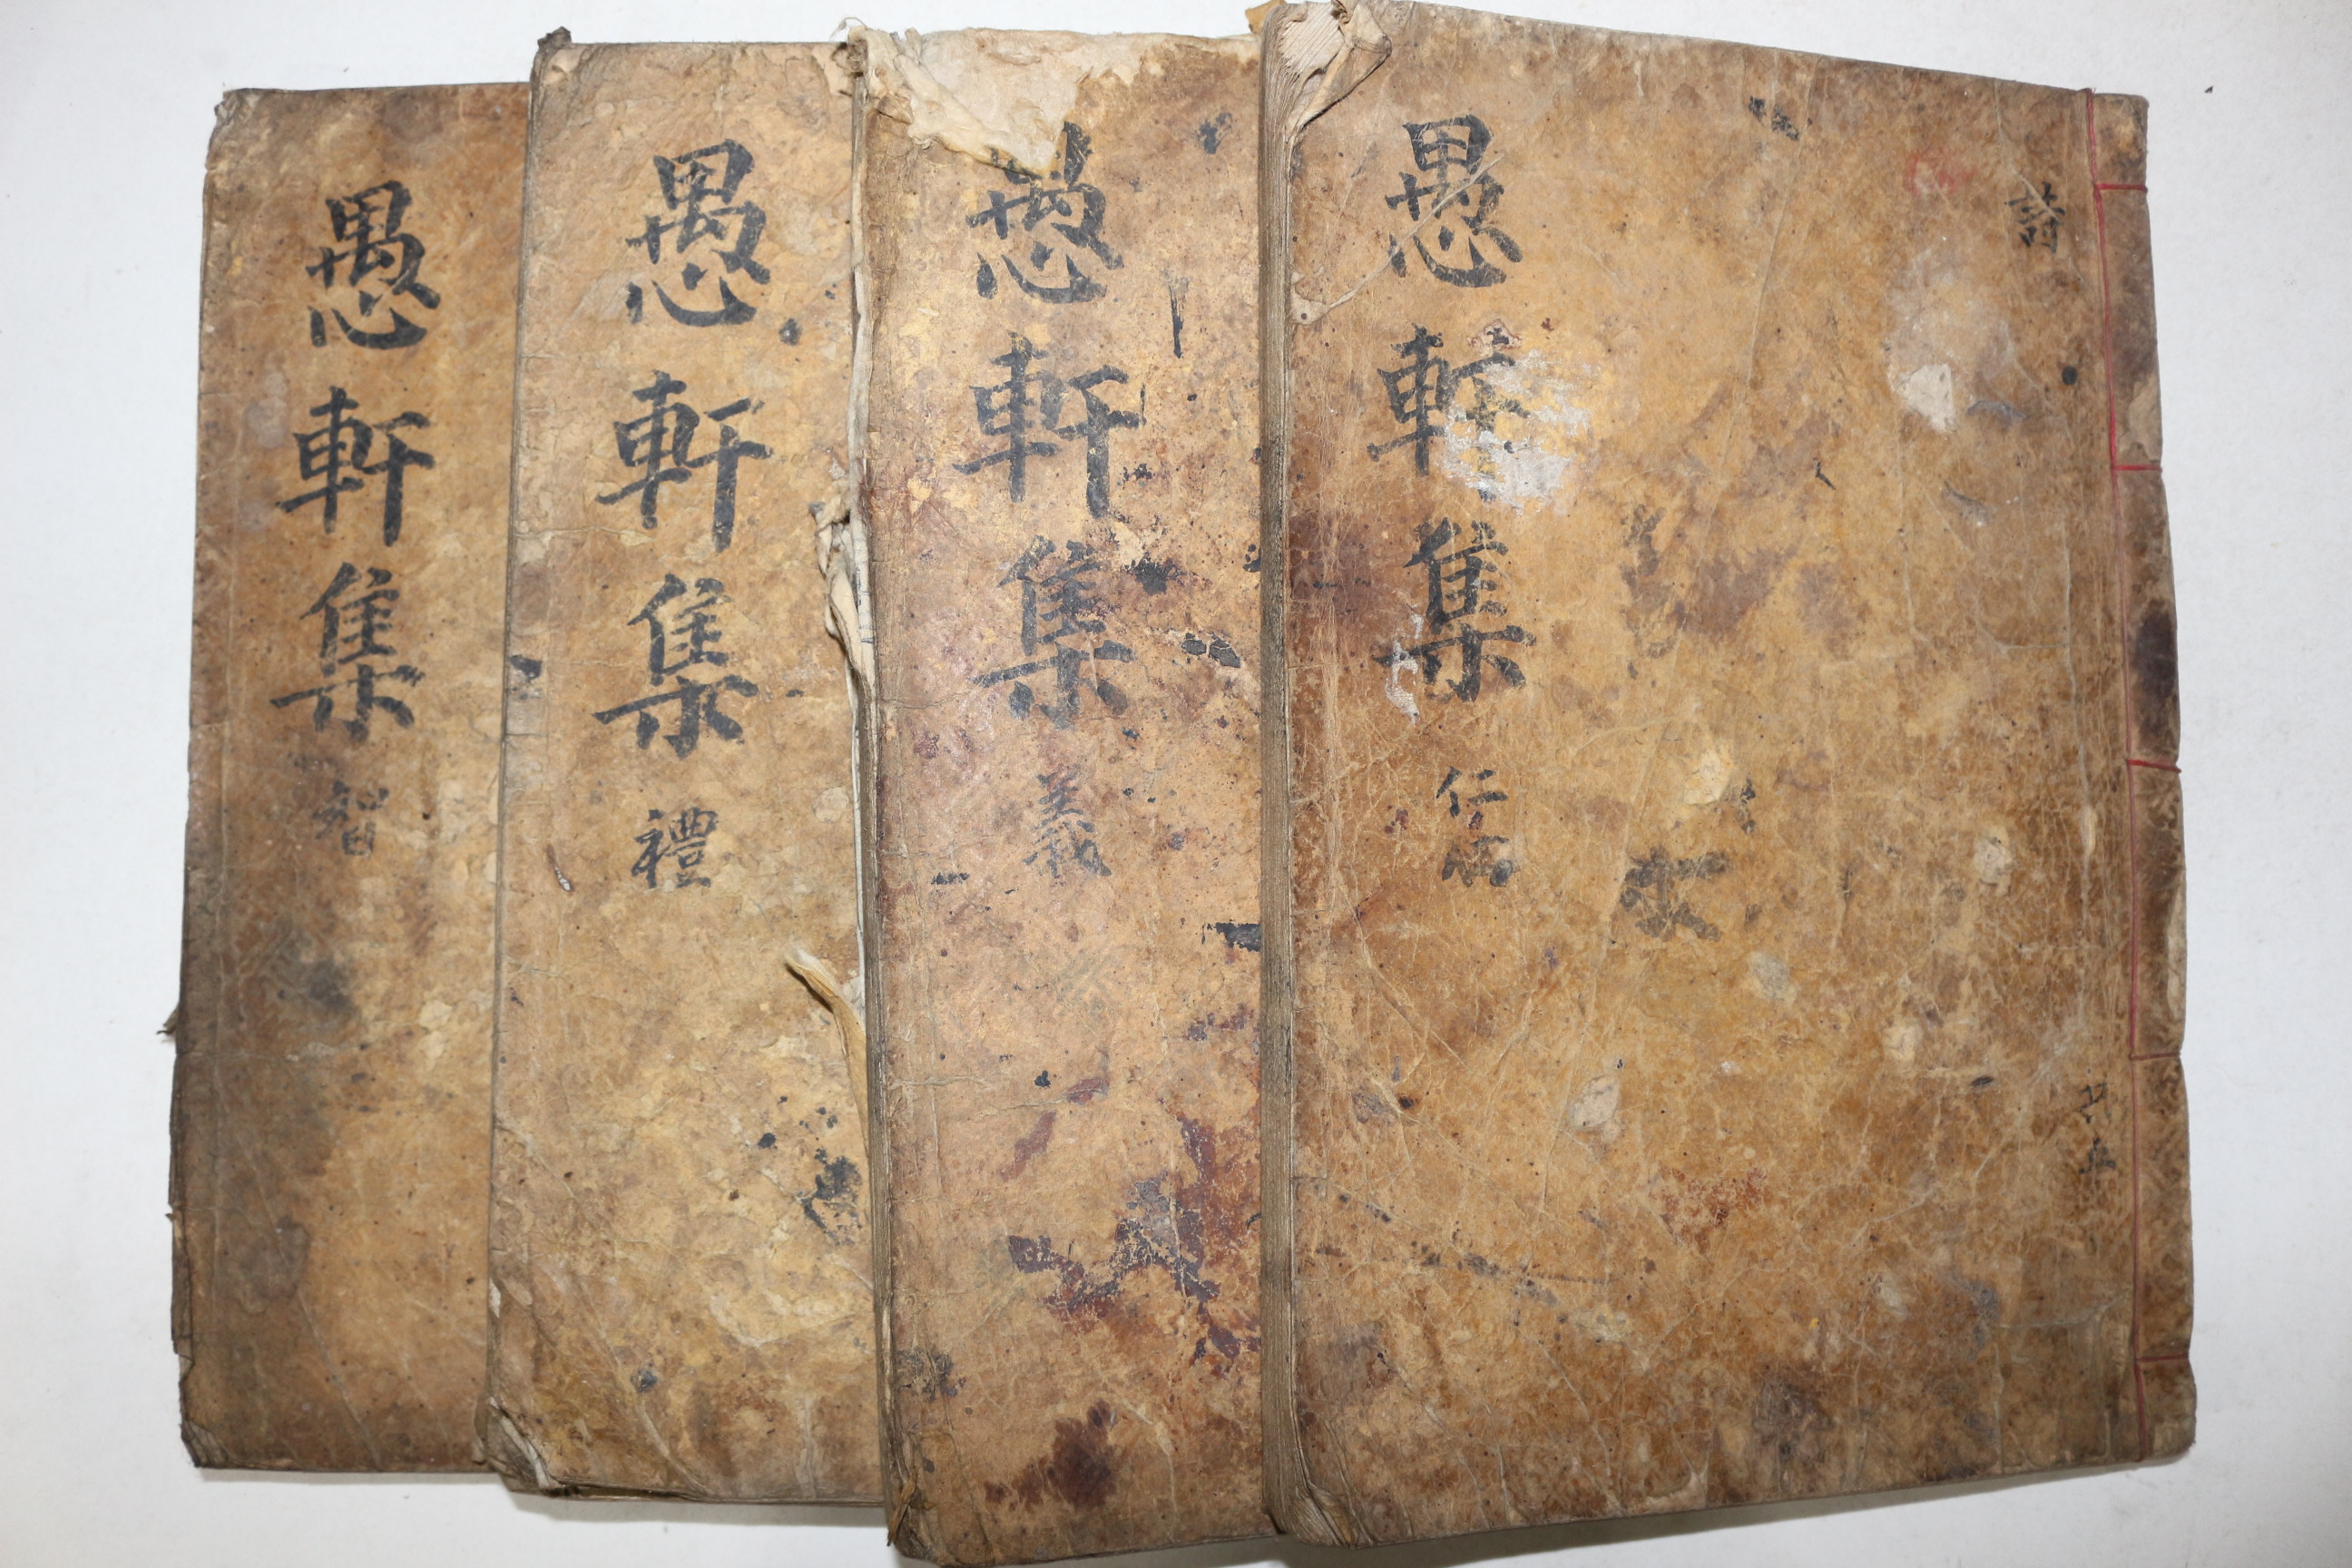 詩
愚軒集 仁
愚軒集 義
愚軒集 禮
愚軒集 智